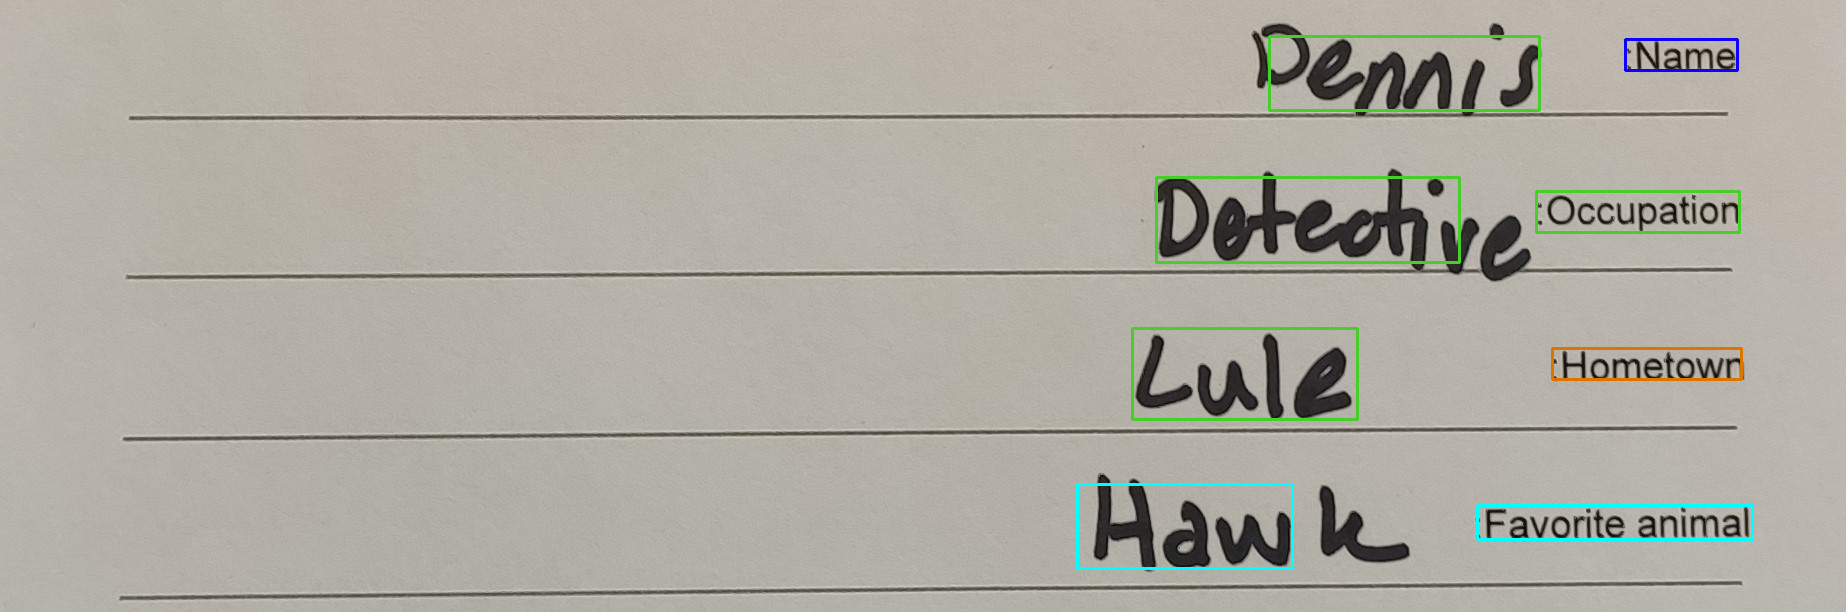 :Name Dennis
:Occupation Detective
:Hometown Lule
:Favorite animal Hawk